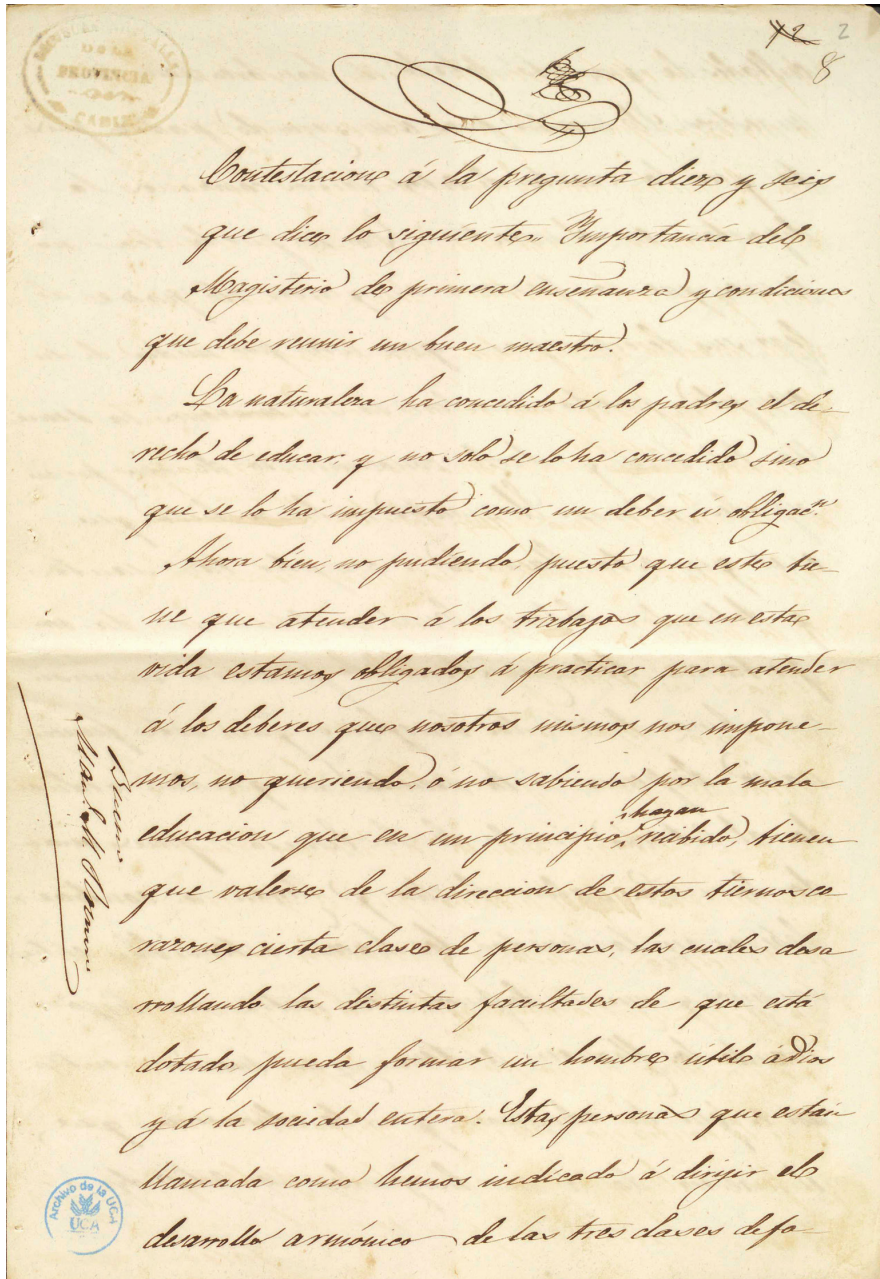 12 2
8
ESCUELA NORMAL
DE LA
PROVINCIA
CADIZ
Contestacion á la pregunta diez y seis
que dice lo siguiente,, Importancia del
Magisterio de primera enseñanza y condiciones
que debe reunir un buen maestro.
La naturaleza ha concedido á los padres el de-
recho de educar, y no solo se lo ha concedido sino
que se lo ha impuesto como un deber ú obligacn.
Ahora bien, no pudiendo, puesto que este tie-
ne que atender á los trabajos que en esta
vida estamos obligados á practicar para atender
á los deberes que nosotros mismos nos impone-
mos, no queriendo, ó no sabiendo por la mala
educacion que en un principio hayan recibido, tienen
que valerse de la direccion de estos tiernos co
razones cierta clase de personas, las cuales desa
rrollando las distintas facultades de que está
dotado pueda formar un hombre útil á Dios
y á la sociedad entera. Estas personas que están
llamada como hemos indicado á dirijir el
desarrollo armónico de las tres clases de fa-
Bueno
Archivo de la UCA
UCA